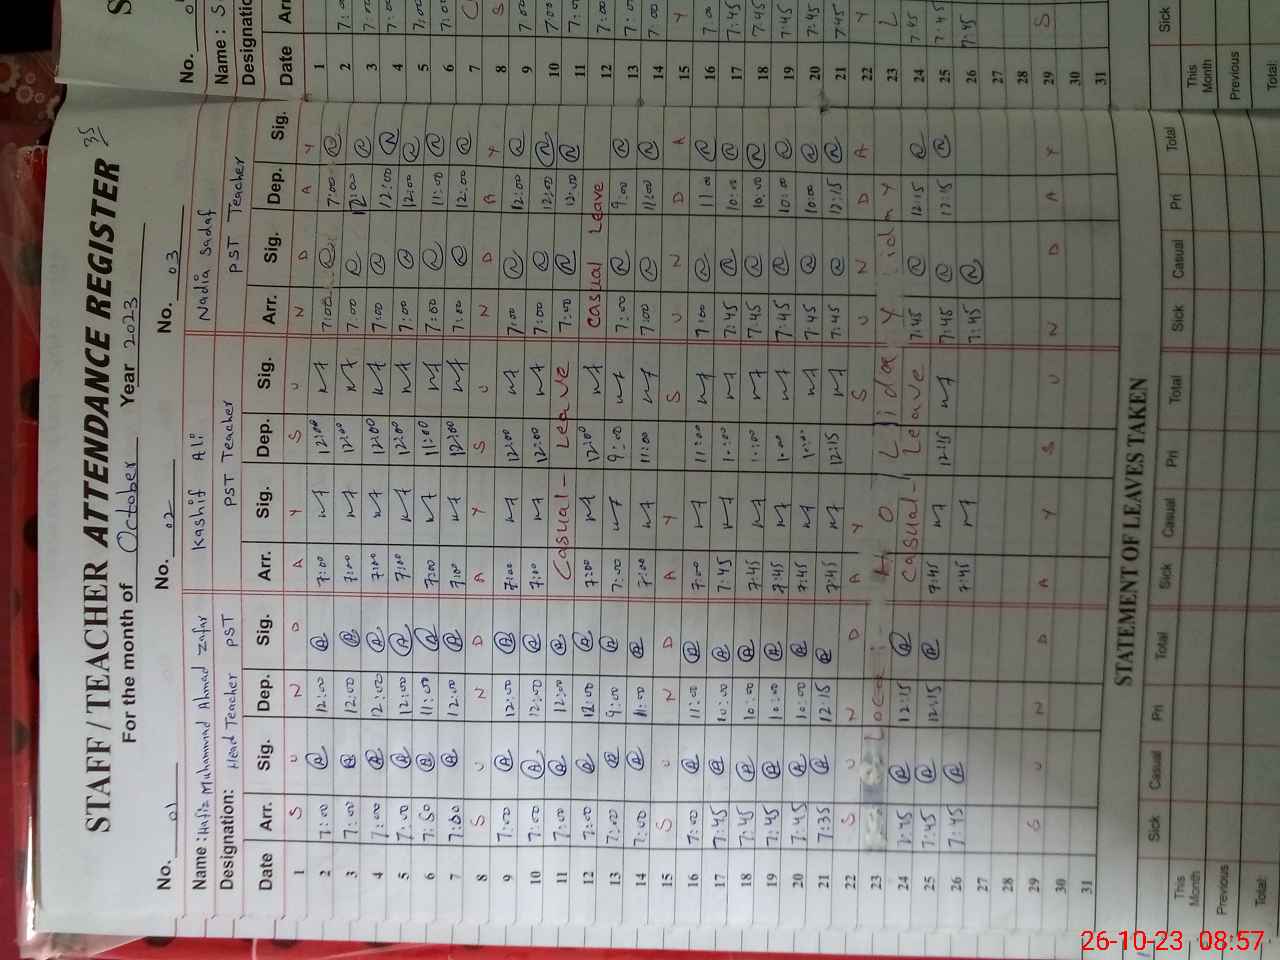 STAFF / TEACHER ATTENDANCE REGISTER 35
For the month of October Year 2023
No. 01 No. 02 No. 03
Name : Hafiz Muhammad Ahmad Zafar Kashif Ali Nadia Sadaf
Designation: Head Teacher PST PST Teacher PST Teacher
Date Arr. Sig. Dep. Sig. Arr. Sig. Dep. Sig. Arr. Sig. Dep. Sig.
1 S U N D A Y S U N D A Y
2 7:00 12:00 7:00 12:00 7:00 7:00
3 7:00 12:00 7:00 12:00 7:00 12:00
4 7:00 12:00 7:00 12:00 7:00 12:00
5 7:00 12:00 7:00 12:00 7:00 12:00
6 7:00 11:00 7:00 11:00 7:00 11:00
7 7:00 12:00 7:00 12:00 7:00 12:00
8 S U N D A Y S U N D A Y
9 7:00 12:00 7:00 12:00 7:00 12:00
10 7:00 12:00 7:00 12:00 7:00 12:00
11 7:00 12:00 Casual - Leave 7:00 12:00
12 7:00 12:00 7:00 12:00 Casual Leave
13 7:00 9:00 7:00 9:00 7:00 9:00
14 7:00 11:00 7:00 11:00 7:00 11:00
15 S U N D A Y S U N D A Y
16 7:00 11:00 7:00 11:00 7:00 11:00
17 7:45 10:00 7:45 10:00 7:45 10:00
18 7:45 10:00 7:45 10:00 7:45 10:00
19 7:45 10:00 7:45 10:00 7:45 10:00
20 7:45 10:00 7:45 10:00 7:45 10:00
21 7:35 12:15 7:45 12:15 7:45 12:15
22 S U N D A Y S U N D A Y
23 Local Holiday
24 7:45 12:15 Casual - Leave 7:45 12:15
25 7:45 12:15 7:45 12:15 7:45 12:15
26 7:45 7:45 7:45
27
28
29 S U N D A Y S U N D A Y
30
31
STATEMENT OF LEAVES TAKEN
Sick Casual Pri Total Sick Casual Pri Total Sick Casual Pri Total
This Month
Previous
Total:
No.
Name : S
Designatio
Date Arr
1 7:00
2
3
4
5 7:00
6 7:00
7
8 S
9 7:00
10 7:00
11
12
13
14 7:00
15 Y
16 7:00
17 7:45
18 7:45
19 7:45
20 7:45
21 7:45
22 Y
23 L
24 7:45
25 7:45
26 7:45
27
28
29 S
30
31
Sick
This Month
Previous
Total:
26-10-23 08:57